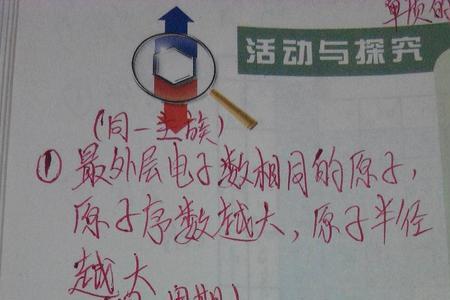 单质的
活动与探究
(同一主族)
①最外层电子数相同的原子,
原子序数越大,原子半径
越大